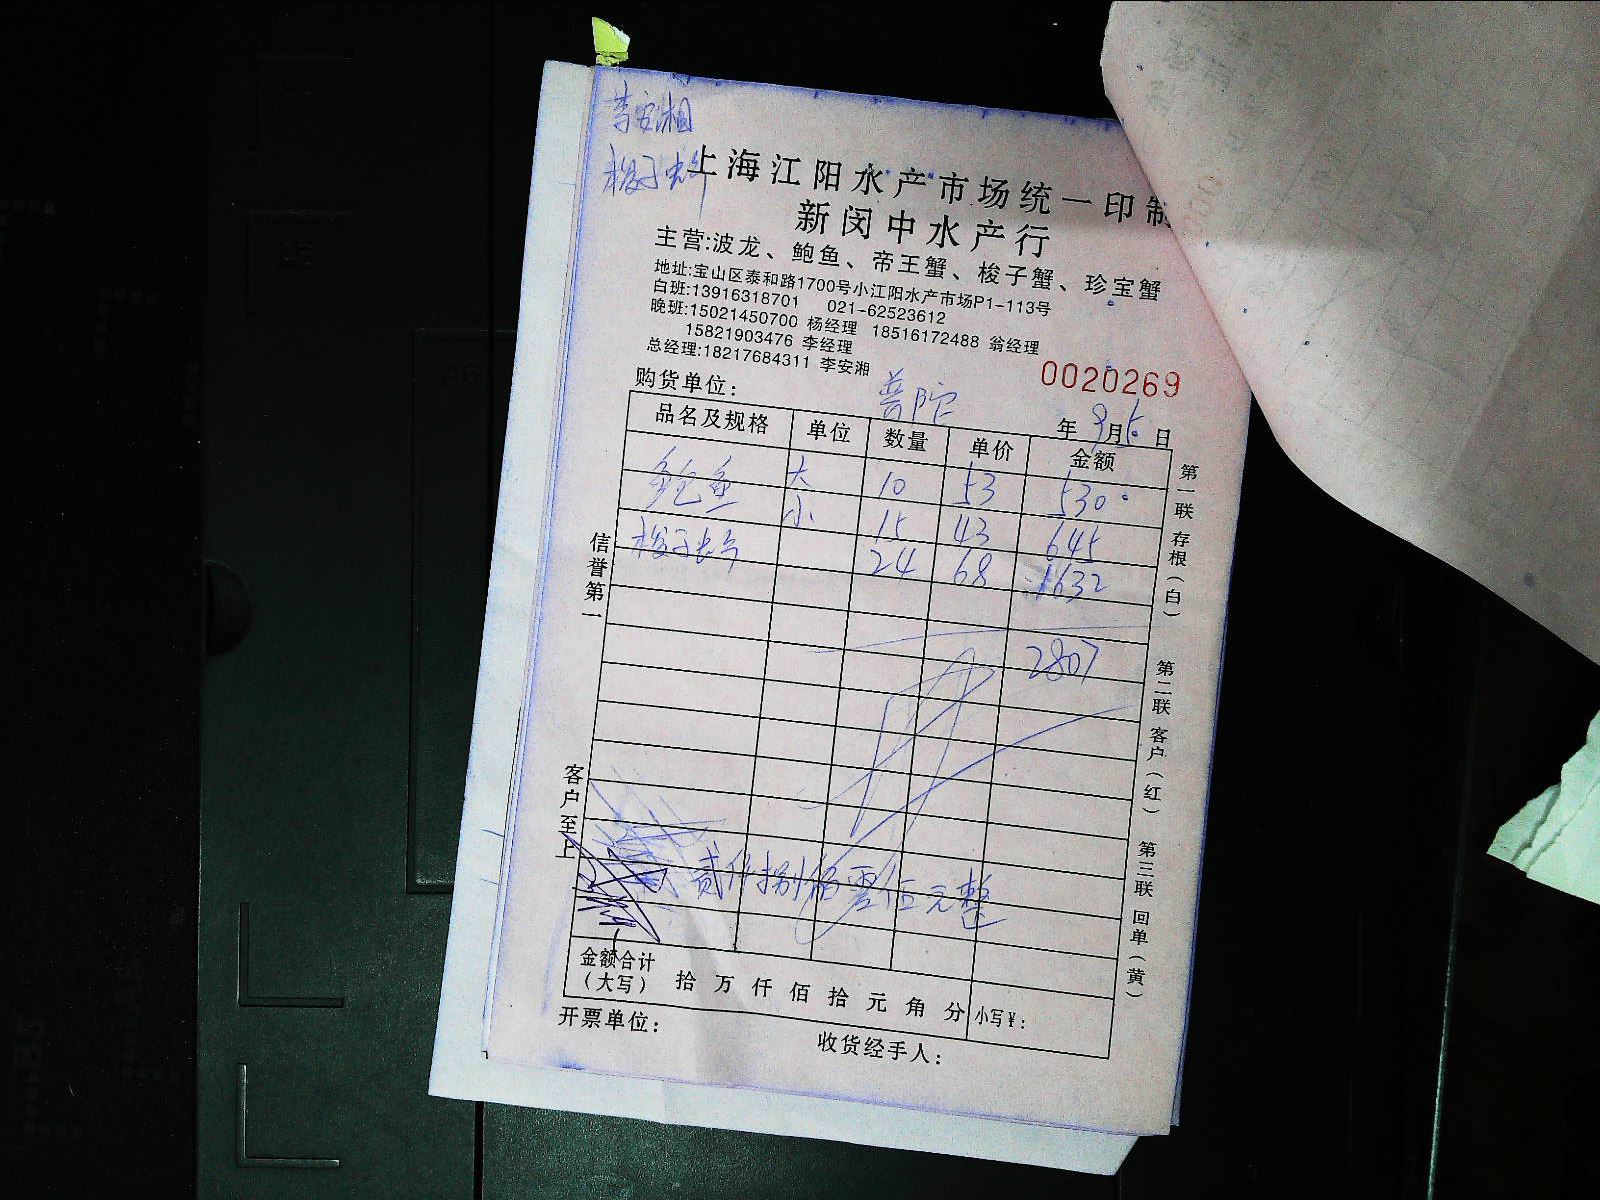 李安湘
梭子蟹
上海江阳水产市场统一印制
新闵中水产行
主营:波龙、鲍鱼、帝王蟹、梭子蟹、珍宝蟹
地址:宝山区泰和路1700号小江阳水产市场P1-113号
白班:13916318701 021-62523612
晚班:15021450700 杨经理 18516172488 翁经理
15821903476 李经理
总经理:18217684311 李安湘
0020269
购货单位: 普陀 年 9月6日
品名及规格 单位 数量 单价 金额
鲍鱼 大 10 53 530
小 15 43 645
梭子蟹 24 68 1632
2807
贰仟捌佰零伍元整
金额合计(大写) 拾 万 仟 佰 拾 元 角 分 小写¥:
开票单位: 收货经手人:
信誉第一
客户至上
第一联 存根(白)
第二联 客户(红)
第三联 回单(黄)